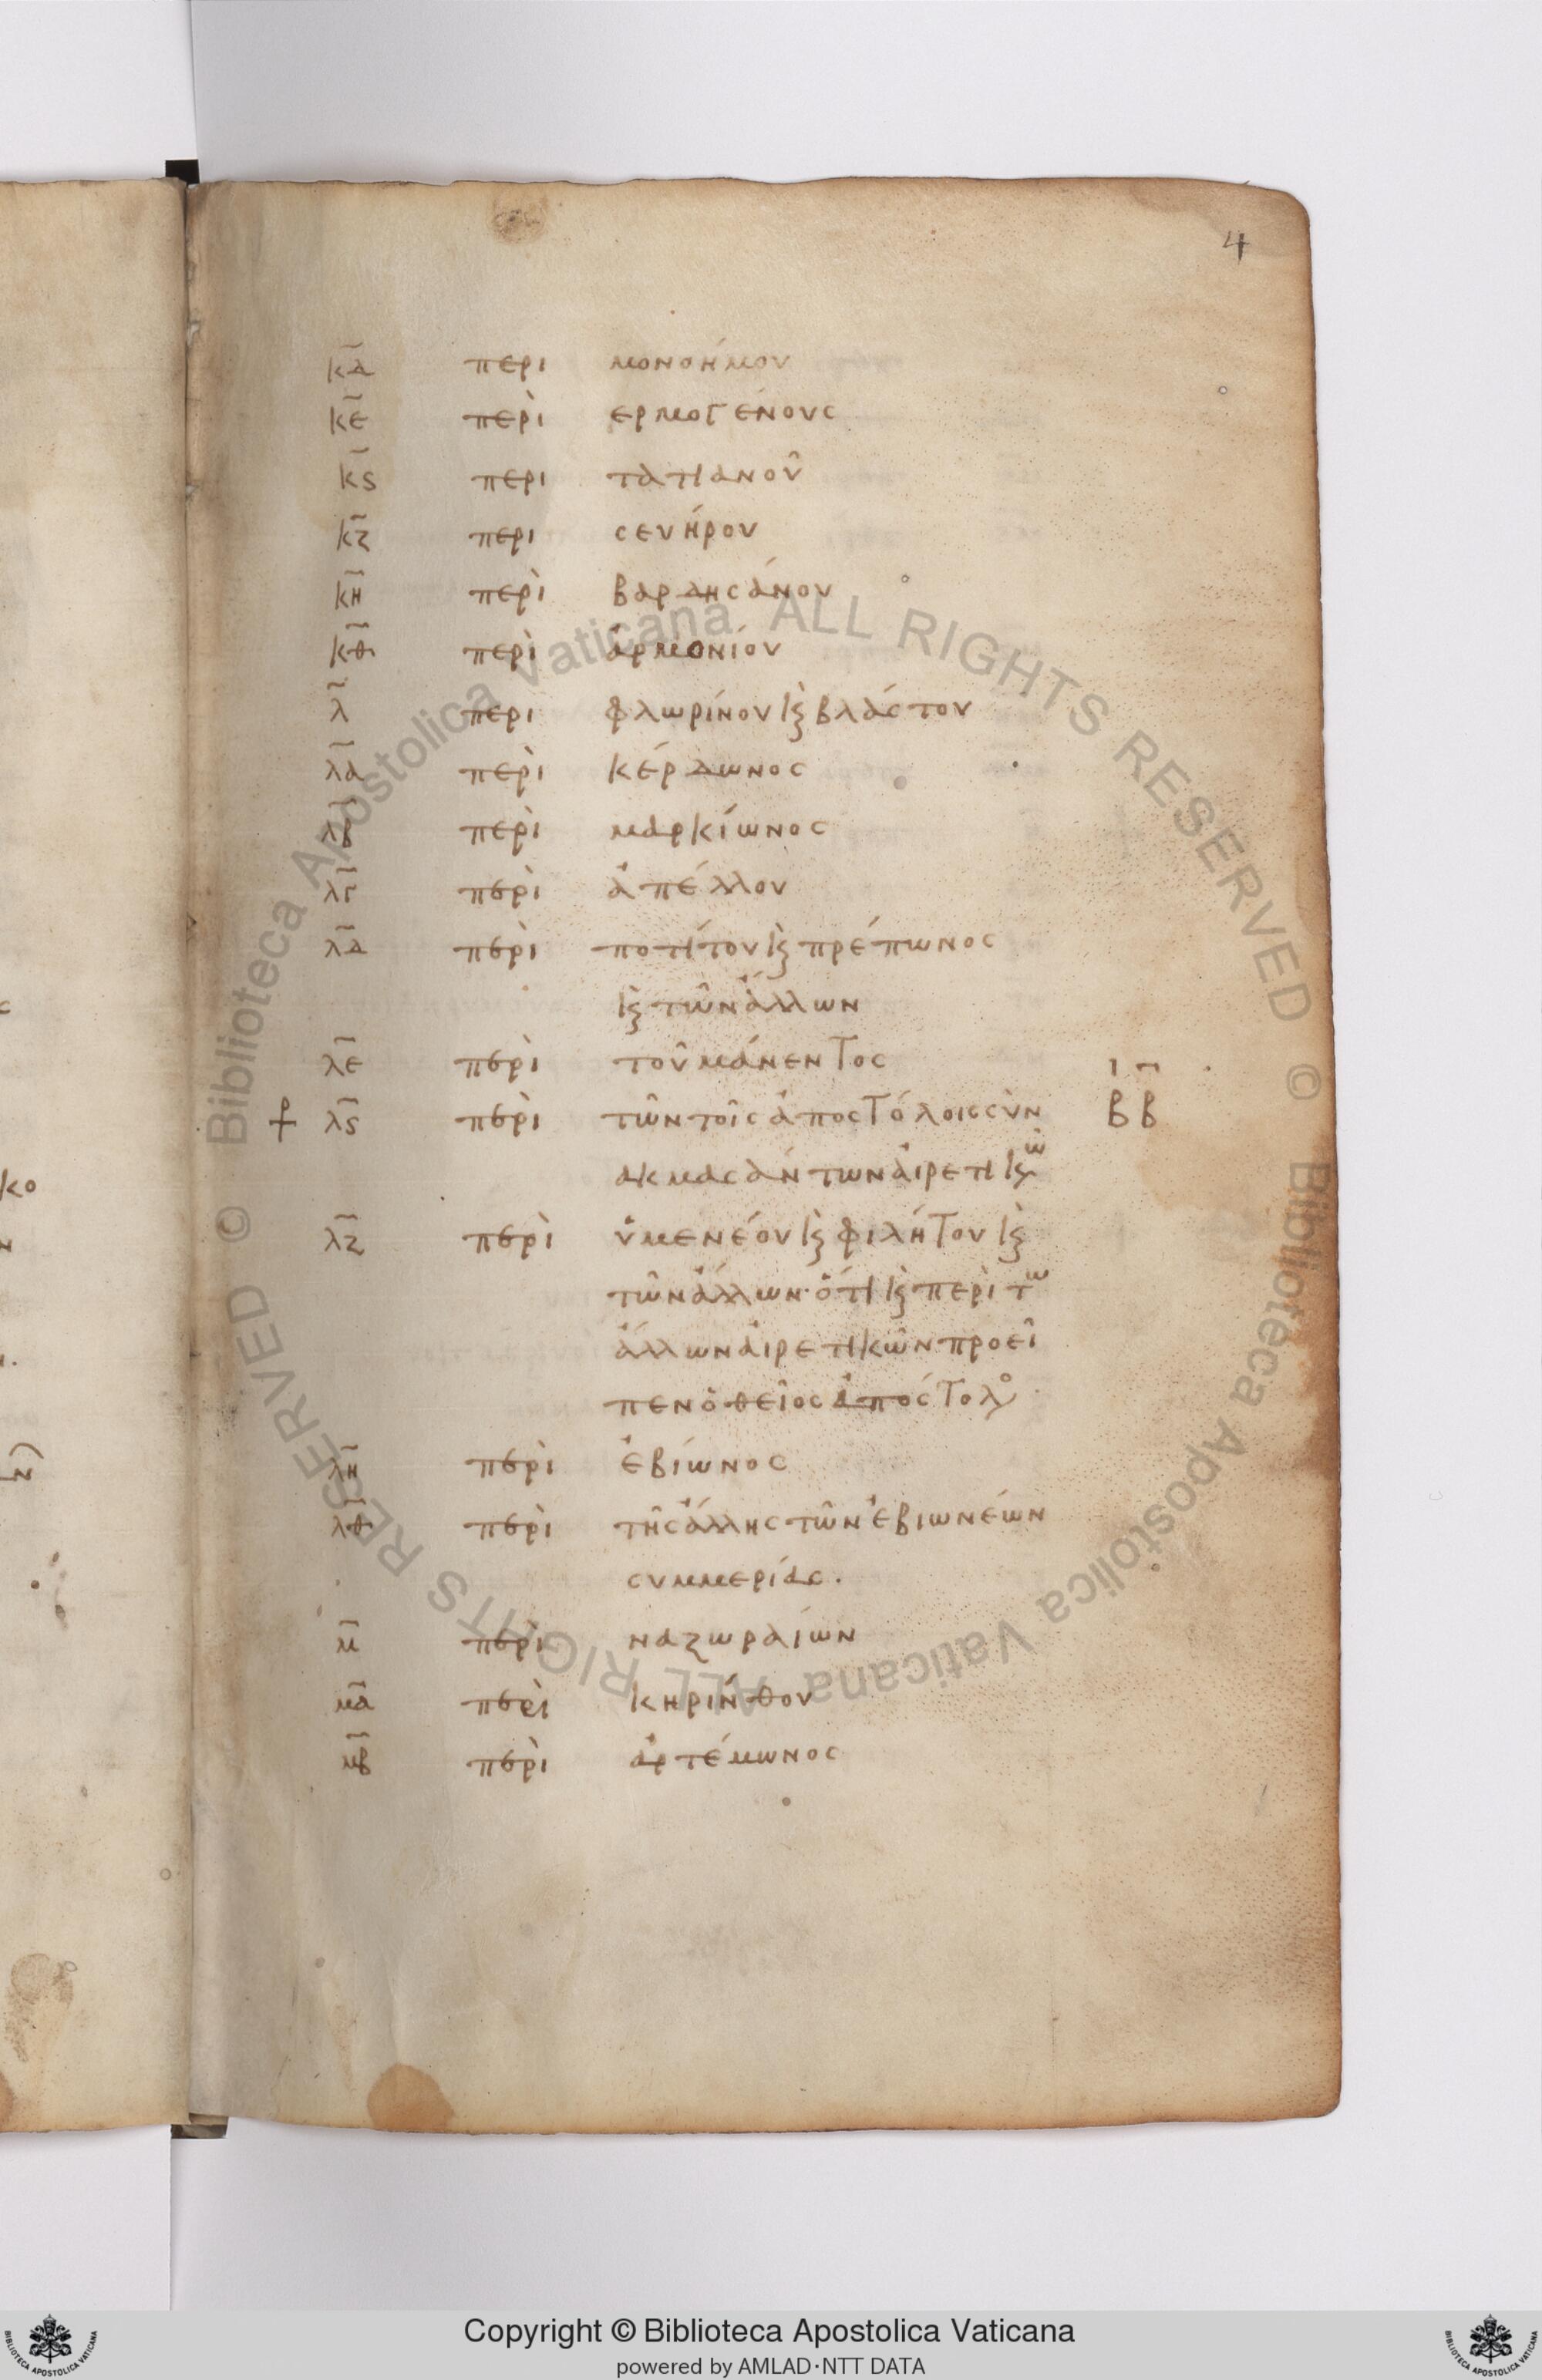 4
κδ̄ περι μονοήμου
κε̄ περὶ ερμογένους
κς̄ περι τατιανοῦ
κζ̄ περι σευήρου
κη̄ περὶ βαρδησάνου
κθ̄ περὶ ἁρμονίου
λ̄ περι φλωρίνου κ(αὶ) βλάστου
λᾱ περὶ κέρδωνος
λβ̄ περὶ μαρκίωνος
λγ̄ περὶ ἀπέλλου
λδ̄ περὶ ποτίτου κ(αὶ) πρέπωνος
κ(αὶ) τῶν ἄλλων
λε̄ περὶ τοῦ μάνεντος
λς̄ περὶ τῶν τοῖς ἀποστόλοις συν β̄ β̄
ακμασάντων αἱρετικῶ
λζ̄ περὶ ὑμενέου κ(αὶ) φιλήτου κ(αὶ)
τῶν ἄλλων· ὅτι κ(αὶ) περὶ τω
ἄλλων αἱρετικῶν προεῖ
πεν ὁ θεῖος ἀπόστολο
λη̄ περὶ ἐβίωνος
λθ̄ περὶ τῆς ἄλλης τῶν ἐβιωνέων
συμμερίας.
μ̄ περὶ ναζωραίων
μᾱ περὶ κηρίνθου
μβ̄ περὶ ἀρτέμωνος
Biblioteca Apostolica Vaticana ALL RIGHTS RESERVED ©
Biblioteca Apostolica Vaticana ALL RIGHTS RESERVED ©
Copyright © Biblioteca Apostolica Vaticana
powered by AMLAD·NTT DATA